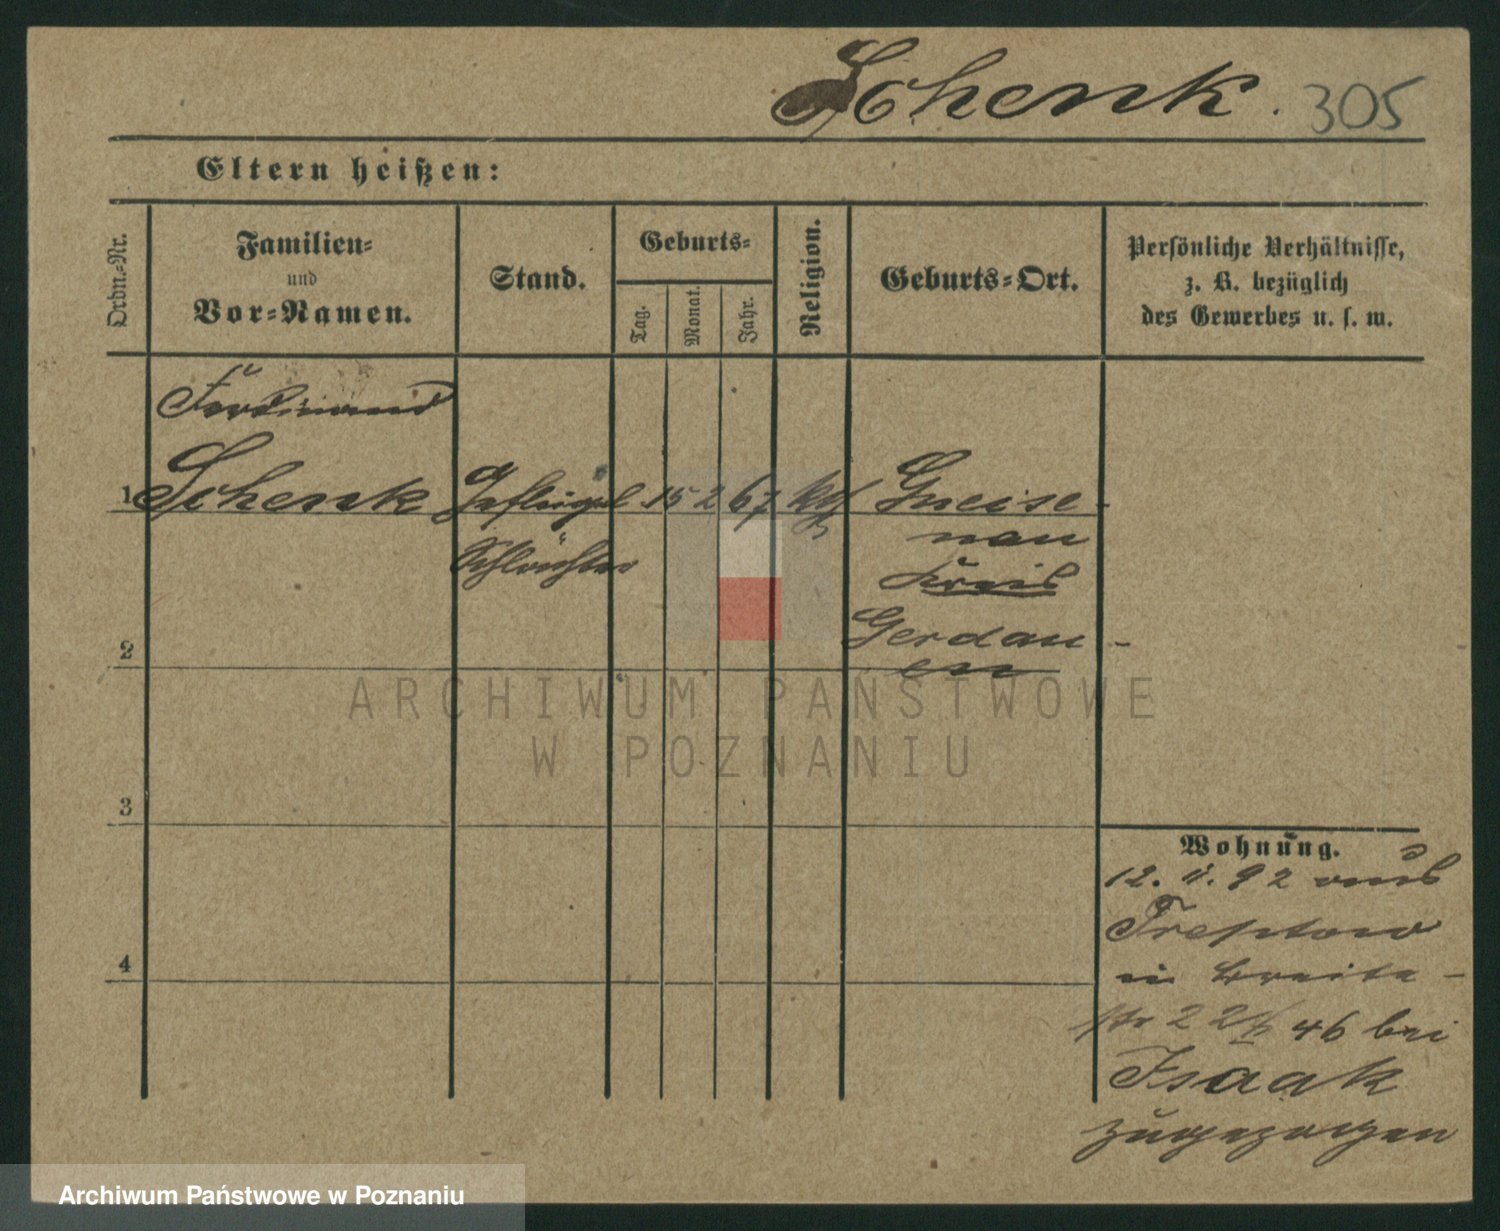 Schenk. 305
Eltern heißen:
Ordn.-Nr.
Familien-
und
Vor-Namen.
Stand.
Geburts-
Tag.
Monat.
Jahr.
Religion.
Geburts-Ort.
Persönliche Verhältnisse,
z. B. bezüglich
des Gewerbes u. s. w.
Ferdinand
1 Schenk Geflügel 15 2 67 Gneise-
nau
Schlächter
Kreis
Gerdau-
en
2
3
4
Wohnung.
12. 92 aus
Treptow
in Breite-
str 22 46 bei
Isaak
zugezogen
ARCHIWUM PAŃSTWOWE
W POZNANIU
Archiwum Państwowe w Poznaniu